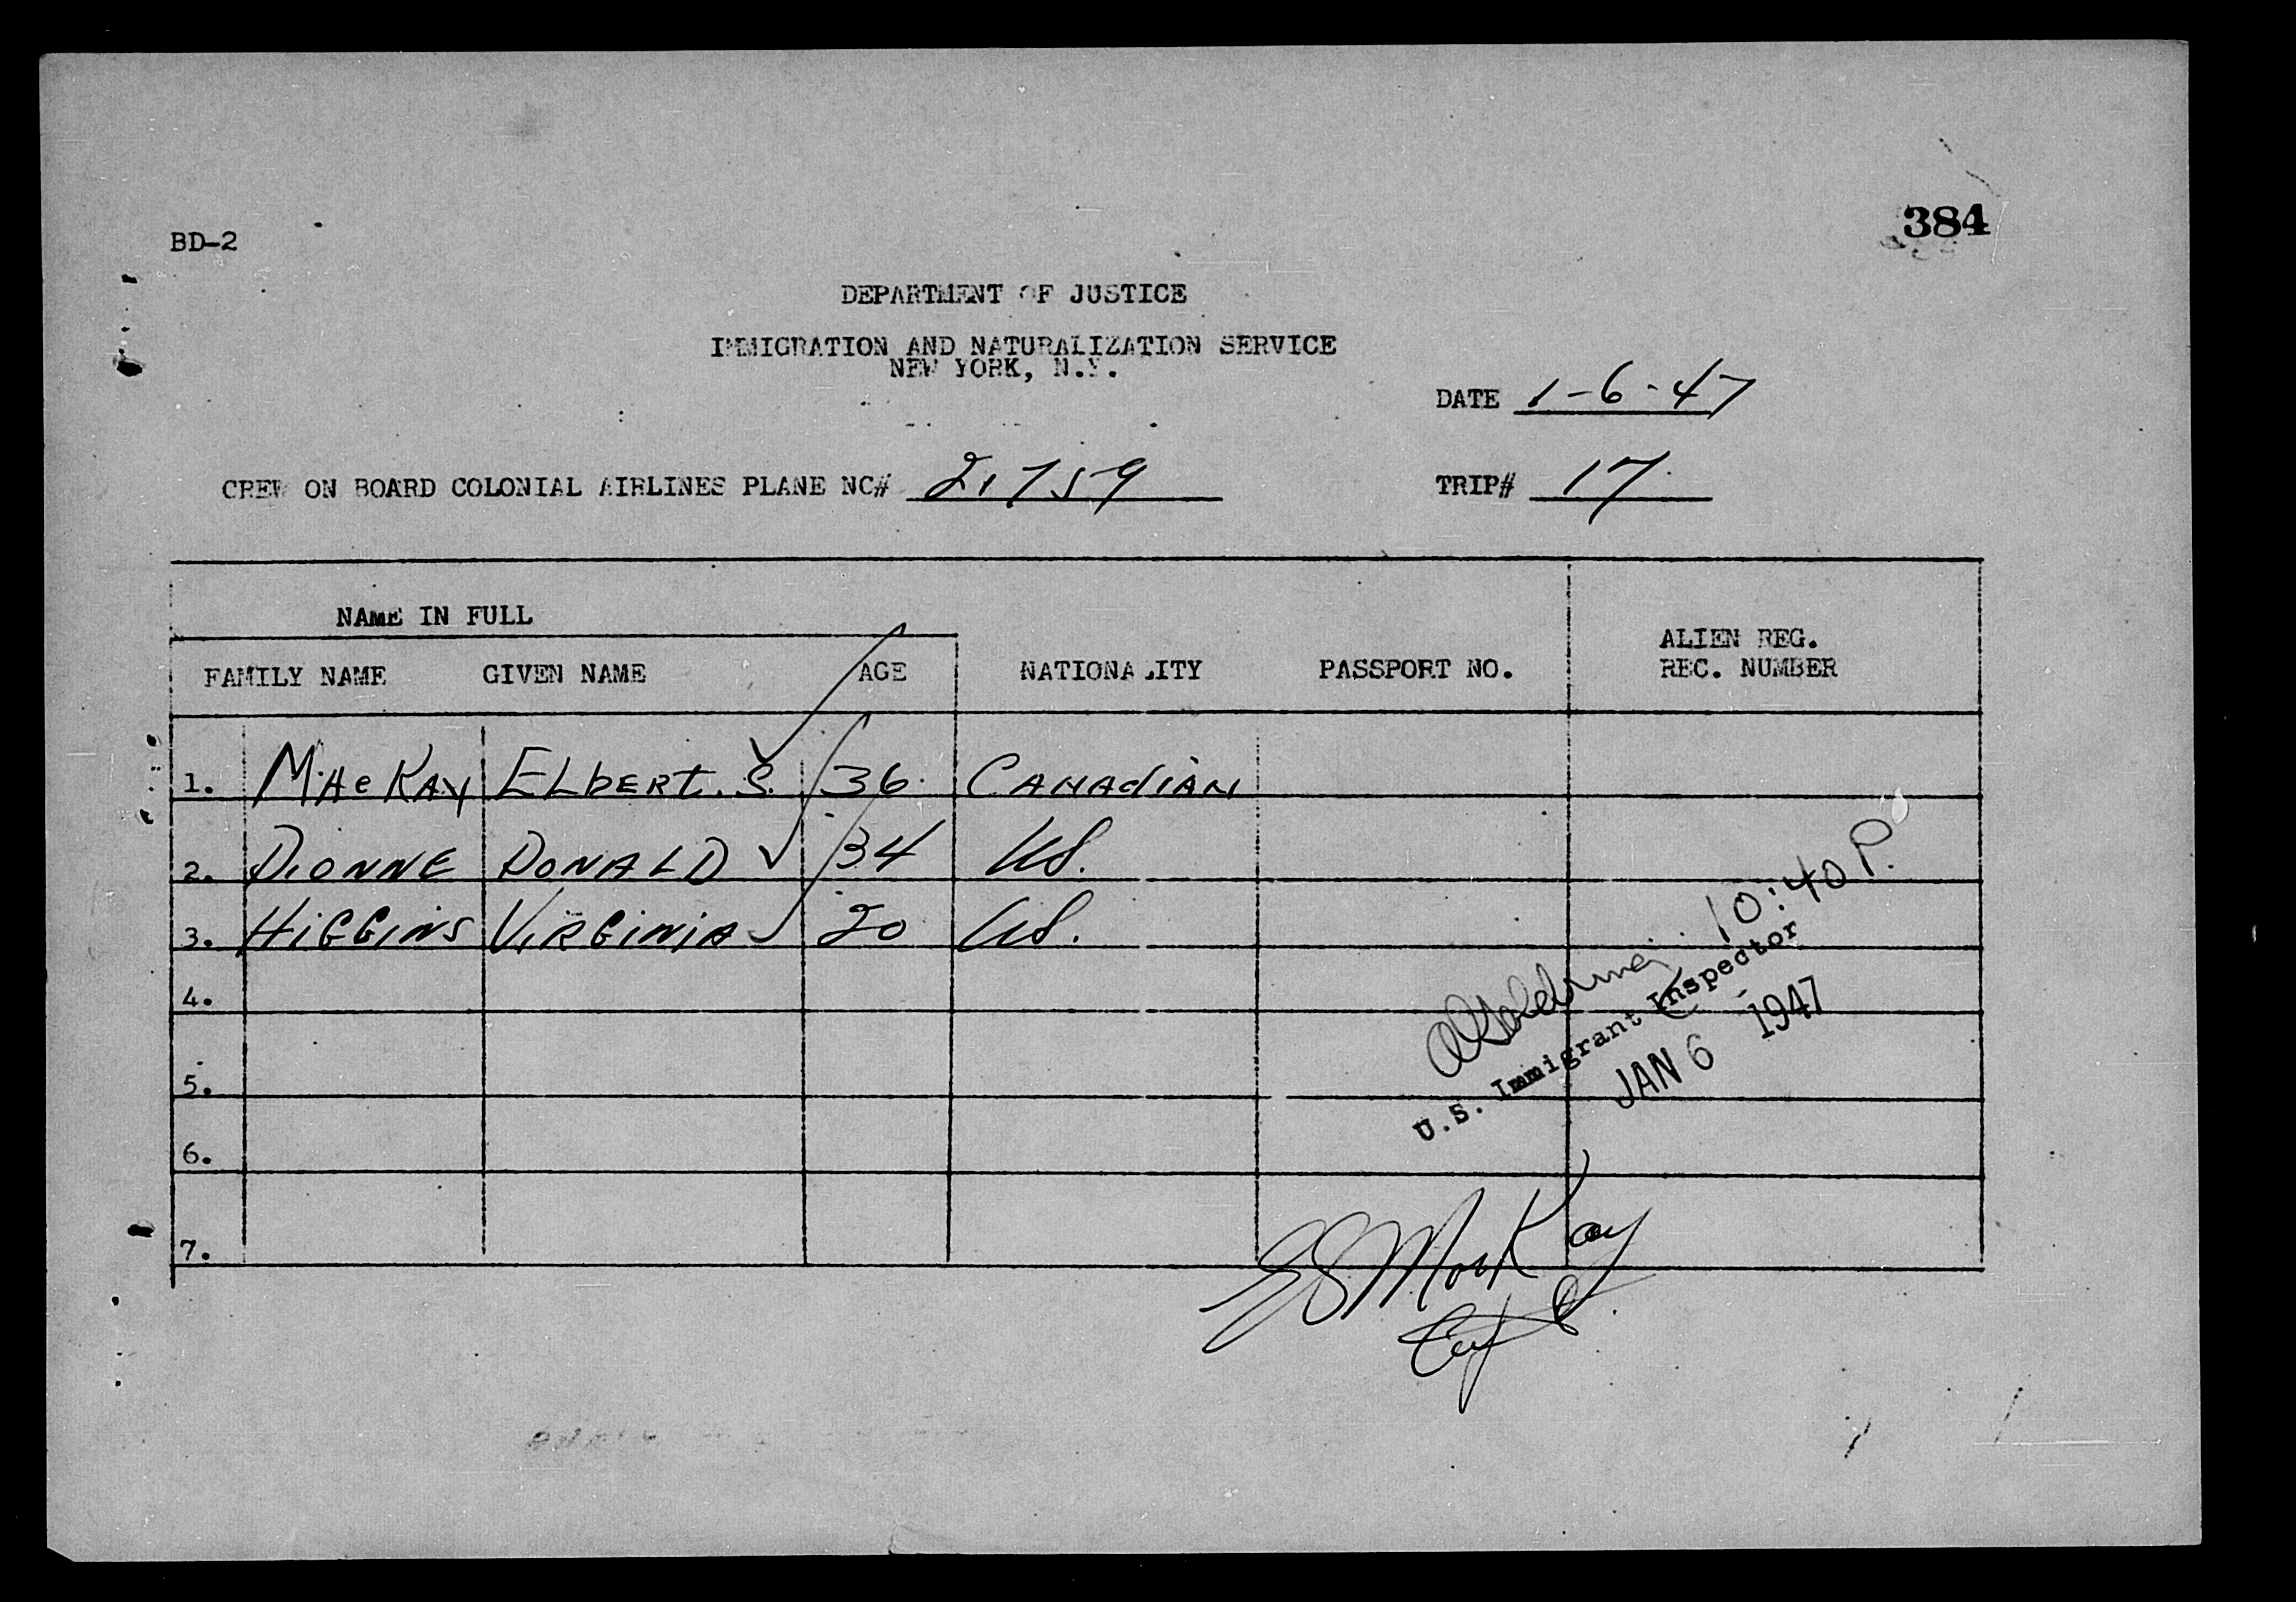 384
BD-2
DEPARTMENT OF JUSTICE
IMMIGRATION AND NATURALIZATION SERVICE
NEW YORK, N.Y.
DATE 1-6-47
CREW ON BOARD COLONIAL AIRLINES PLANE NC# 21759
TRIP# 17
NAME IN FULL
FAMILY NAME GIVEN NAME AGE NATIONALITY PASSPORT NO. ALIEN REG. REC. NUMBER
1. MacKay ELbERt. S. 36 CANAdiAN
2. DIONNE DONALD 34 US.
3. HiGGiNS ViRGiNiA 20 US.
10:40 P.
U.S. Immigrant Inspector
JAN 6 1947
4.
5.
6.
7.
ES MacKay
Capt